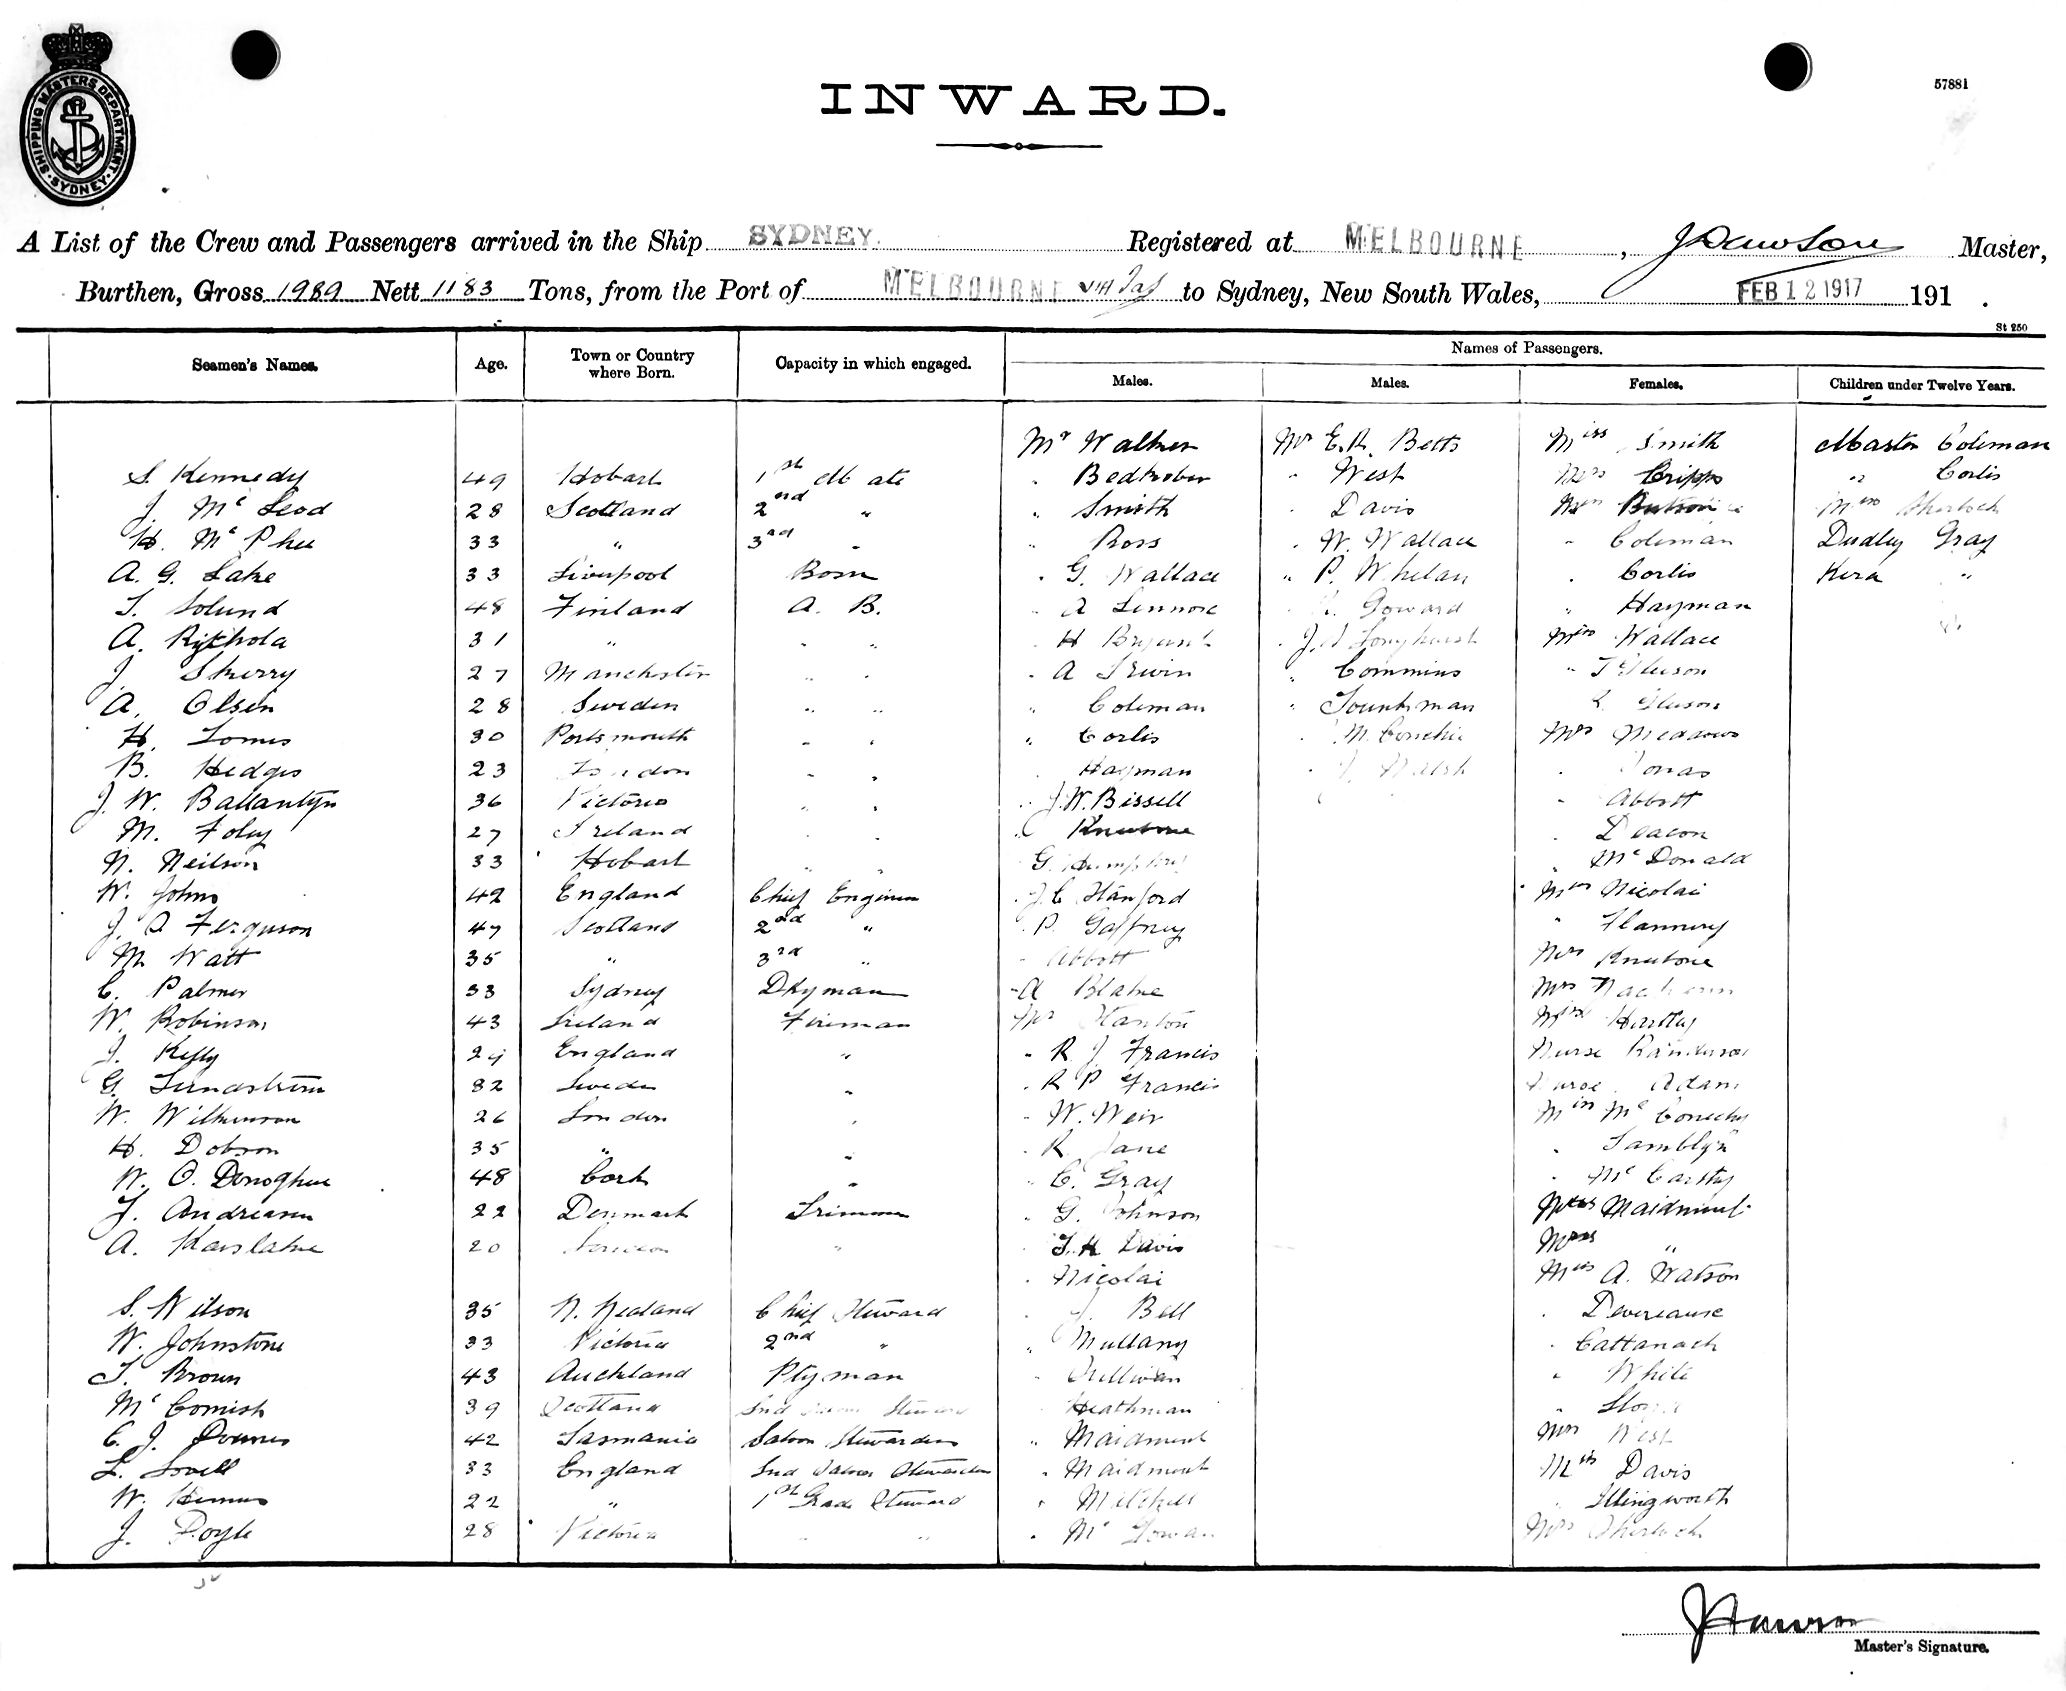 SHIPPING MASTERS DEPARTMENT. SYDNEY.
57881
INWARD.
A List of the Crew and Passengers arrived in the Ship SYDNEY. Registered at MELBOURNE, J Dawson Master,
Burthen, Gross 1989 Nett 1183 Tons, from the Port of MELBOURNE to Sydney, New South Wales, FEB 12 1917 191 .
St 250
Seamen's Names. Age. Town or Country where Born. Capacity in which engaged. Names of Passengers.
Males. Males. Females. Children under Twelve Years.
Mr Walker Mr E.R. Betts Miss Smith Master Coleman
S. Kennedy 49 Hobart 1st Mate " Bedhober " West Mrs Cripps " Corlis
J. Mc Leod 28 Scotland 2nd " " Smith " Davis Mrs Miss Sherlock
H. Mc Phee 33 " 3rd " " Ross " W. Wallace " Coleman Dudley Gray
A. G. Lake 33 Liverpool Bosn " G. Wallace " P. Whelan " Corlis Kera "
T. Solund 48 Finland A. B. " A Lennox Goward " Hayman
A. 31 " " " " H Bryant " J. Longhurst Miss Wallace
J. Sherry 27 Manchester " " " A Irwin " Commins " T Gleeson
A. Olsen 28 Sweden " " " Coleman " Tounkman L. Gleeson
H. Lomes 30 Portsmouth " " " Corlis " McConchie Mrs Meadows
B. Hedges 23 London " " Hayman " J. Walsh " Jonas
J. W. Ballantyn 36 Victoria " " " J.W. Bissell " Abbott
M. Foley 27 Ireland " " " Knutone " Deacon
N. Neilson 33 Hobart " " G. Humphrey " Mc Donald
W. Johns 42 England Chief Engineer " J.C Hanford " Miss Nicolai
J. A Ferguson 47 Scotland 2nd " " P. Gaffney " Flannery
M Watt 35 " 3rd " " Abbott Mrs Knutone
C. Palmer 33 Sydney Dkyman " A Blake Mrs
W. Robinson 43 Ireland Fireman Mr Stanton Miss Hartley
J. Kelly 29 England " " R J Francis Nurse Randerson
G. Lundstrom 32 Sweden " " R P Francis Nurse Adam
W. Wilkinson 26 London " " W. Weir Miss Mc Conechy
H. Dobson 35 " " " R. Jane " Tamblyn
W. O. Donoghue 48 Cork " " C. Gray " Mc Carthy
J. Andreasen 22 Denmark Trimmer " G. Johnson Maidment
A. Karslake 20 " " T. H Davis "
" Nicolai Miss A. Watson
S. Wilson 35 N. Zealand Chief Steward " J. Bell " Devereause
W. Johnstone 33 Victoria 2nd " " Mullany " Cattanach
T. Brown 43 Auckland Ptyman " Sullivan " White
Mc Cornish 39 Scotland 2nd Saloon Steward " Heathman "
C. J. Downes 42 Tasmania Saloon Stewardess " Maidment Mrs West
L. Lovell 33 England 2nd Saloon Stewardess " Maidment Miss Davis
W. 22 " 1st Grade Steward " Mitchell " Illingworth
J. Doyle 28 Victoria " " " Mc Gowan Mrs Sherlock
J Dawson
Master's Signature.